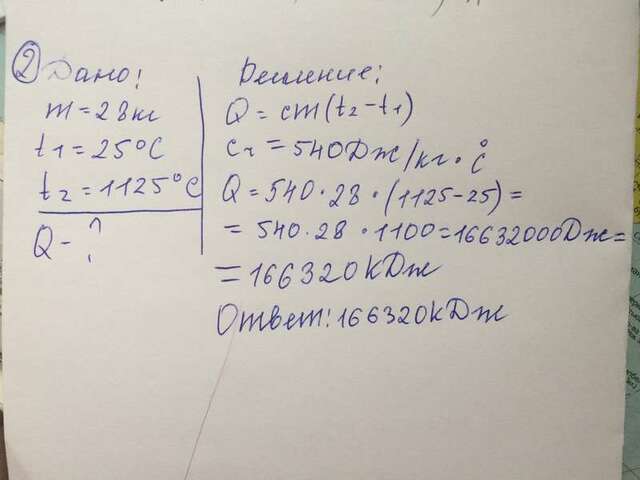 ② Дано:
m = 28 кг
t1 = 25°C
t2 = 1125°C
Q - ?
Решение:
Q = cm(t2 - t1)
c1 = 540 Дж/кг • °C
Q = 540 • 28 • (1125 - 25) =
= 540 • 28 • 1100 = 16632000 Дж =
= 166320 кДж
Ответ: 166320 кДж